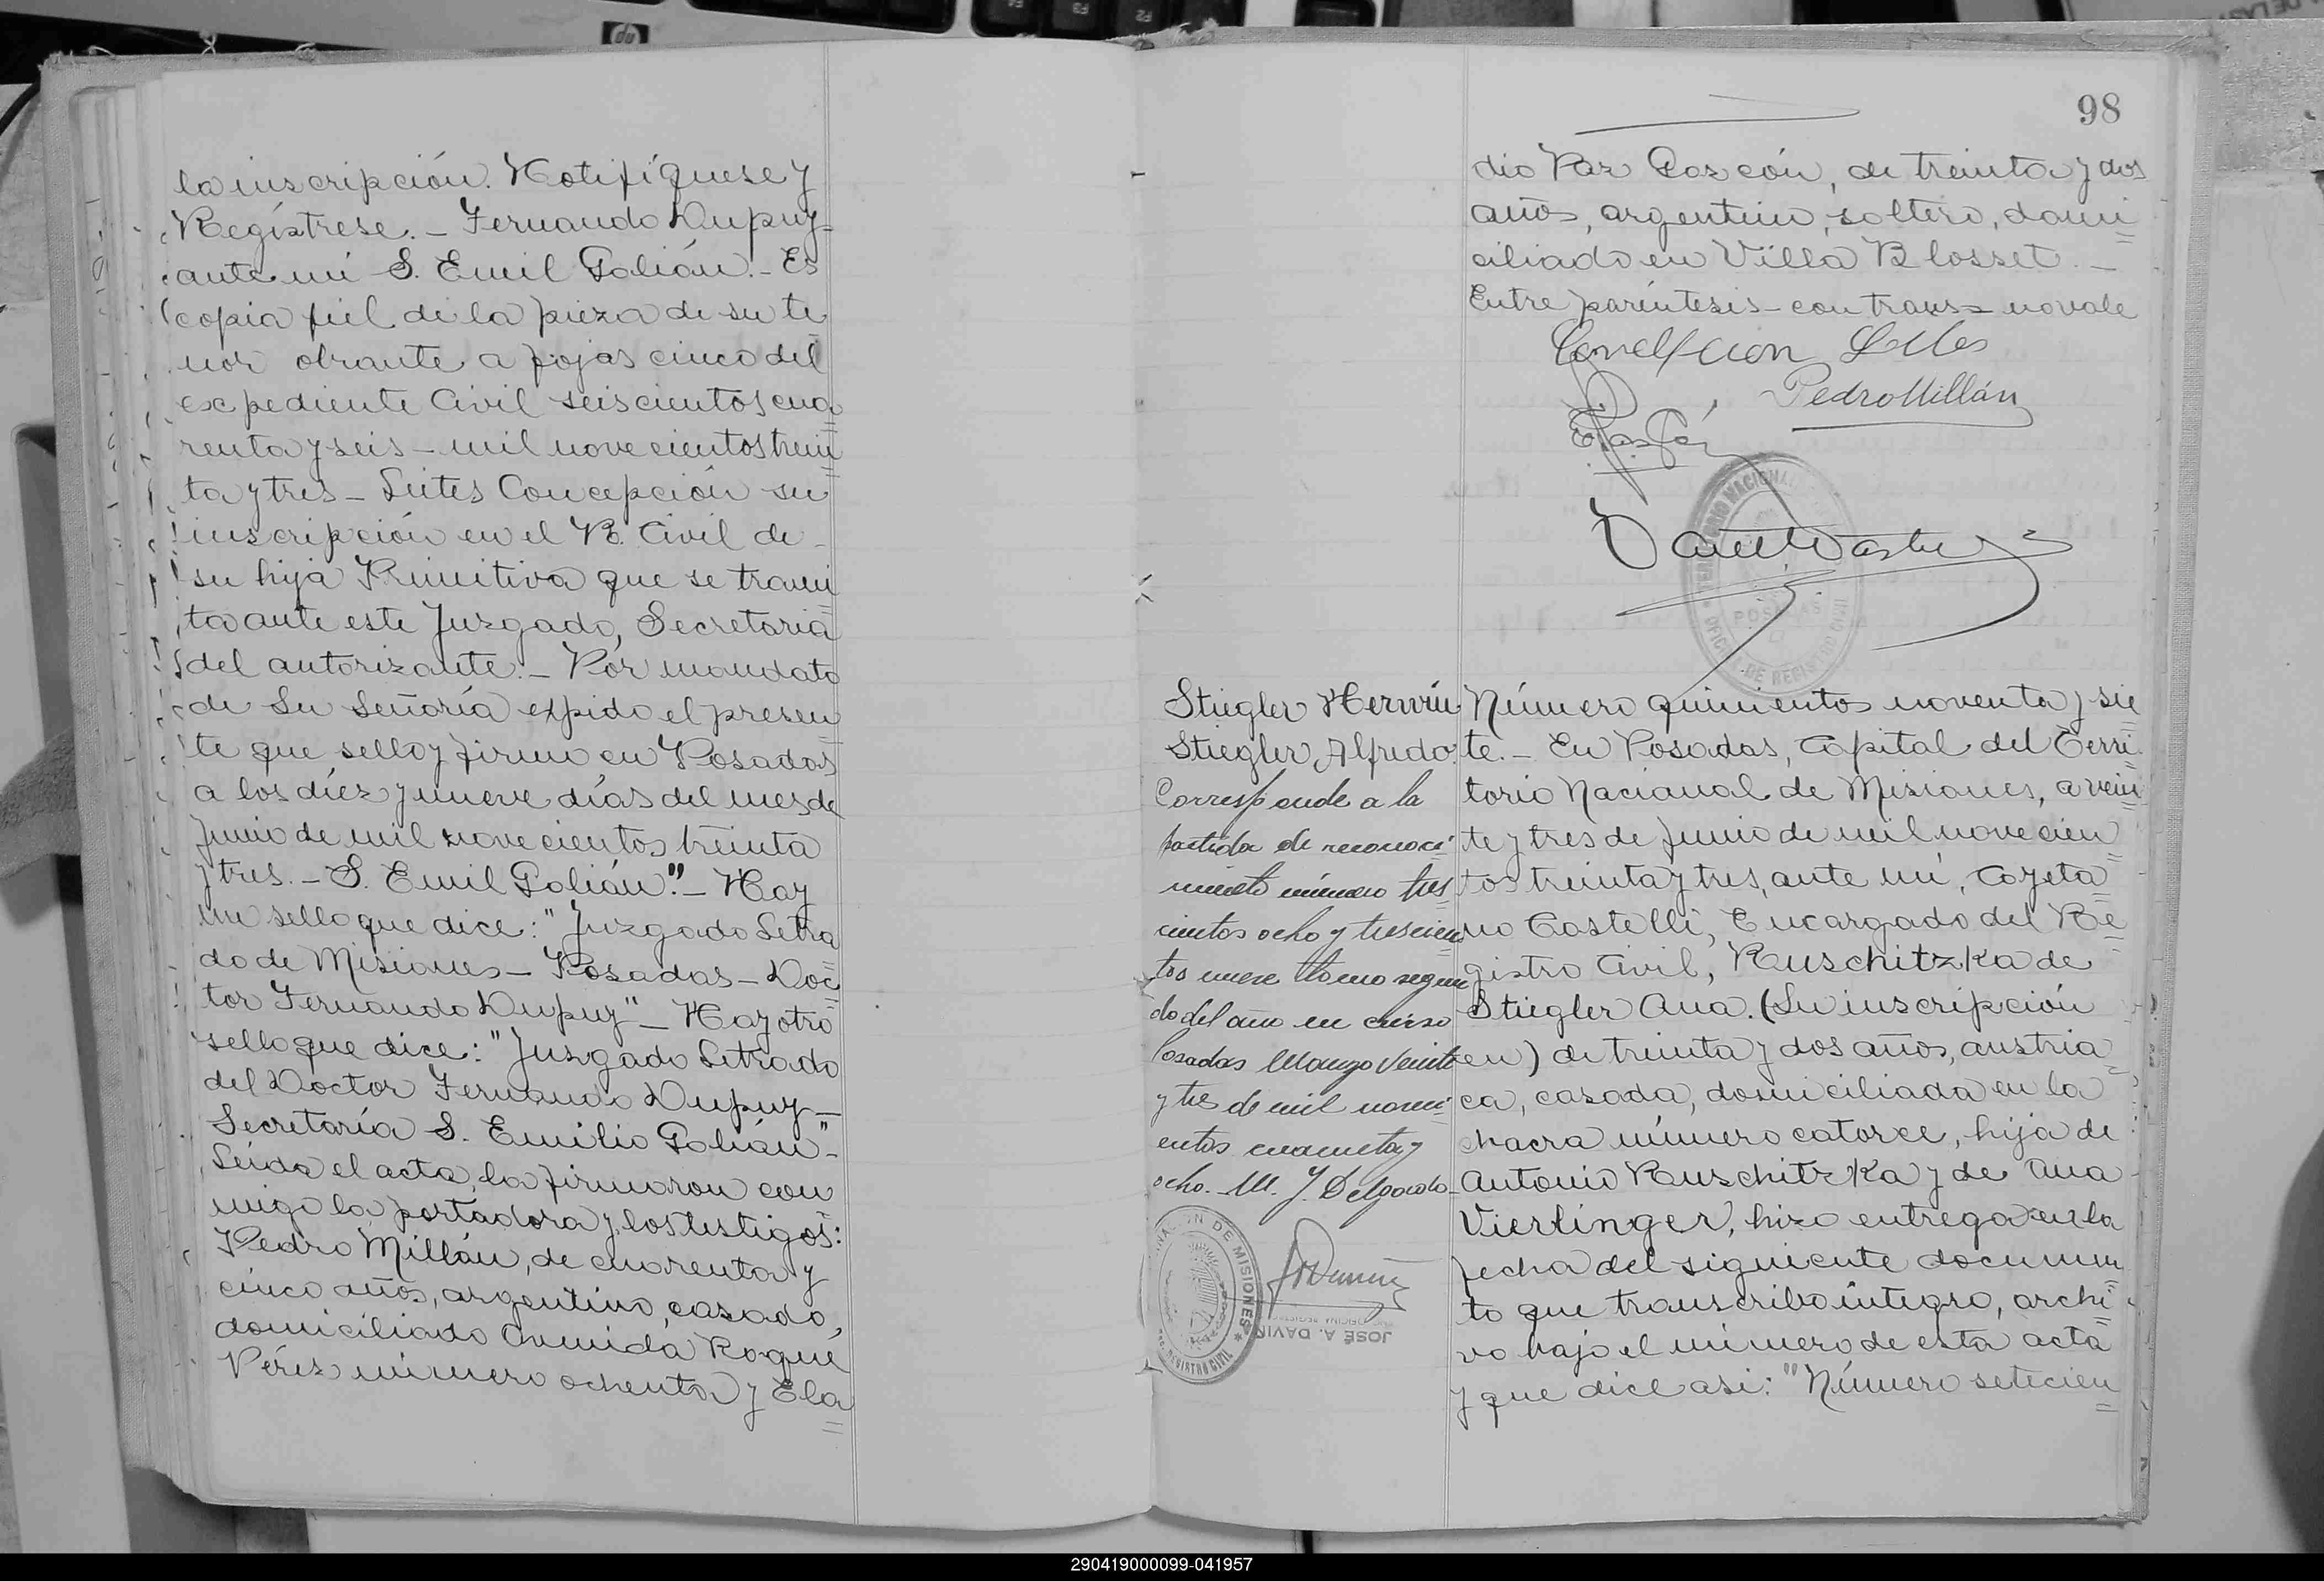 la inscripción. Notifíquese y
Regístrese. - Fernando Dupuy-
ante mi S. Emil Golián. - Es
copia fiel de la pieza de su te
nor obrante a fojas cinco del
expediente Civil seiscientos cua
renta y seis - mil novecientos trein
ta y tres - Leites Concepción su
inscripción en el R. Civil de
su hija Primitiva que se trami
ta ante este Juzgado, Secretaria
del autorizante. - Por mandato
de Su Señoría expido el presen
te que sello y firmo en Posadas
a los diez y nueve días del mes de
Junio de mil novecientos treinta
y tres. - S. Emil Golián". - Hay
un sello que dice: "Juzgado Letra
do de Misiones - Posadas - Doc
tor Fernando Dupuy" - Hay otro
sello que dice: "Juzgado Letrado
del Doctor Fernando Dupuy -
Secretaría S. Emilio Golián" -
Leida el acta, la firmaron con
migo la portadora y los testigos:
Pedro Millán, de cuarenta y
cinco años, argentino, casado,
domiciliado Avenida Roque
Pérez número ochenta y Ela
98
dio Paz Garcón, de treinta y dos
años, argentino, soltero, domi
ciliado en Villa Blosset. -
Entre paréntesis - con trans = no vale
Pedro Millán
POSADAS
Stiegler Herwin
Stiegler, Alfredo.
Corresponde a la
partida de reconoci
miento número tres
cientos ocho y trescien
tos nueve tomo segun
do del año en curso
Posadas Marzo Veinte
y tres de mil noveci
entos cuarenta y
ocho. - M. J. Delgado -
DE MISIONES
REGISTRO CIVIL
JOSÉ A. DAVIÑ
Número quinientos noventa y sie
te. - En Posadas, Capital del Terri
torio Nacional de Misiones, a vein
te y tres de Junio de mil novecien
tos treinta y tres, ante mi, Cayeta
no Castelli, Encargado del Re
gistro Civil, Ruschitzka de
Stiegler Ana. (Su inscripción
en) de treinta y dos años, austria
ca, casada, domiciliada en la
chacra número catorce, hija de
Antonio Ruschitzka y de Ana
Vierlinger, hizo entrega en la
fecha del siguiente documen
to que transcribo íntegro, archi
vo bajo el número de esta acta
y que dice asi: "Número setecien
290419000099-041957